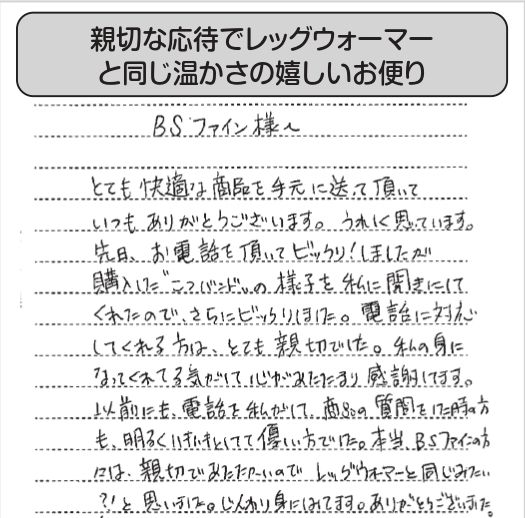 親切な応待でレッグウォーマー
と同じ温かさの嬉しいお便り
BSファイン様へ
とても快適な商品を手元に送って頂いて
いつもありがとうございます。うれしく思っています。
先日、お電話を頂いてビックリ!しましたが
購入した"こつバンド"の様子を私に聞きにして
くれたので、さらにビックリしました。電話に対応
してくれる方は、とても親切でした。私の身に
なってくれてる気がして心があたたまり感謝してます。
以前にも、電話を私がして、商品の質問をした時の方
も、明るくいきいきとしてて優しい方でした。本当、BSファインの方
には、親切であたたかいので レッグウォーマーと同じみたい
?!と思いました。じんわり身にしみてます。ありがとうございました。